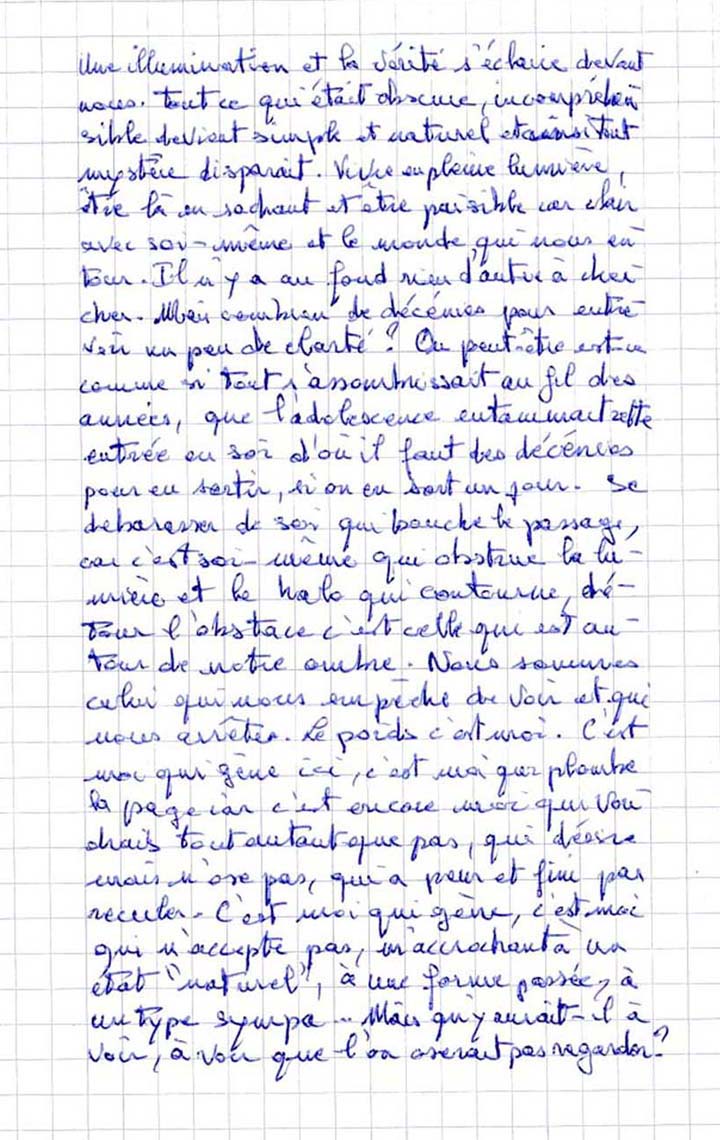 Une illumination et la vérité s'éclaire devant
nous. Tout ce qui était obscure, incompréhen
sible devient simple et naturel et ainsi tout
mystère disparait. Vivre en pleine lumière,
être là en sachant et être paisible car clair
avec soi-même et le monde qui nous en
tour. Il n'y a au fond rien d'autre à cher
cher. Mais combien de décénies pour entre
voir un peu de clarté ? Ou peut-être est-ce
comme si tout s'assombrissait au fil des
années, que l'adolescence entammait cette
entrée en soi d'où il faut des décénies
pour en sortir, si on en sort un jour. Se
debarasser de soi qui bouche le passage,
car c'est soi-même qui obstrue la lu-
mière et le halo qui contourne, dé-
tour l'obstace c'est celle qui est au-
tour de notre ombre. Nous sommes
celui qui nous empêche de voir et qui
nous arrêter. Le poids c'est moi. C'est
moi qui gène ici, c'est moi qui plombe
la page car c'est encore moi qui vou
drais tout autant que pas, qui désire
mais n'ose pas, qui a peur et fini par
reculer. C'est moi qui gène, c'est moi
qui n'accepte pas, m'accrochant à un
état "naturel", à une forme passée, à
un type sympa... Mais qu'y aurait-il à
voir, à voir que l'on oserait pas regarder?